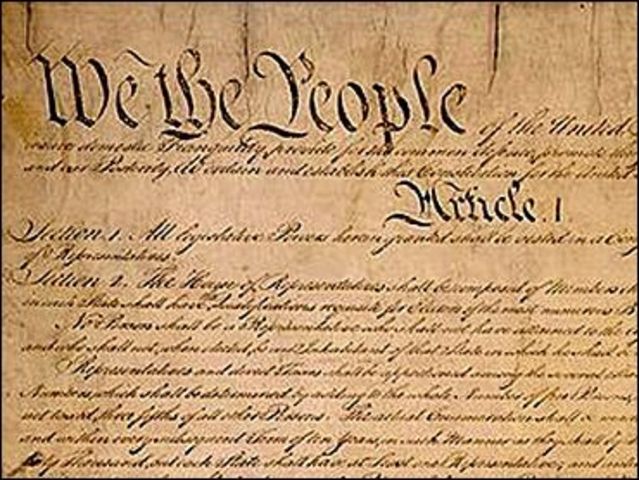 We the People of the United
insure domestic Tranquility, provide for the common defence, promote the
and our Posterity, do ordain and establish this Constitution for the United
Article. I
Section. 1. All legislative Powers herein granted shall be vested in a Con
of Representatives.
Section. 2. The House of Representatives shall be composed of Members
in each State shall have Qualifications requisite for Electors of the most numerous
No Person shall be a Representative who shall not have attained to the
and who shall not, when elected, be an Inhabitant of that State in which he shall
Representatives and direct Taxes shall be apportioned among the several
Numbers, which shall be determined by adding to the whole Number of free Persons,
not taxed, three fifths of all other Persons. The actual Enumeration shall be
and within every subsequent Term of ten Years, in such Manner as they shall by
thirty Thousand, but each State shall have at Least one Representative; and